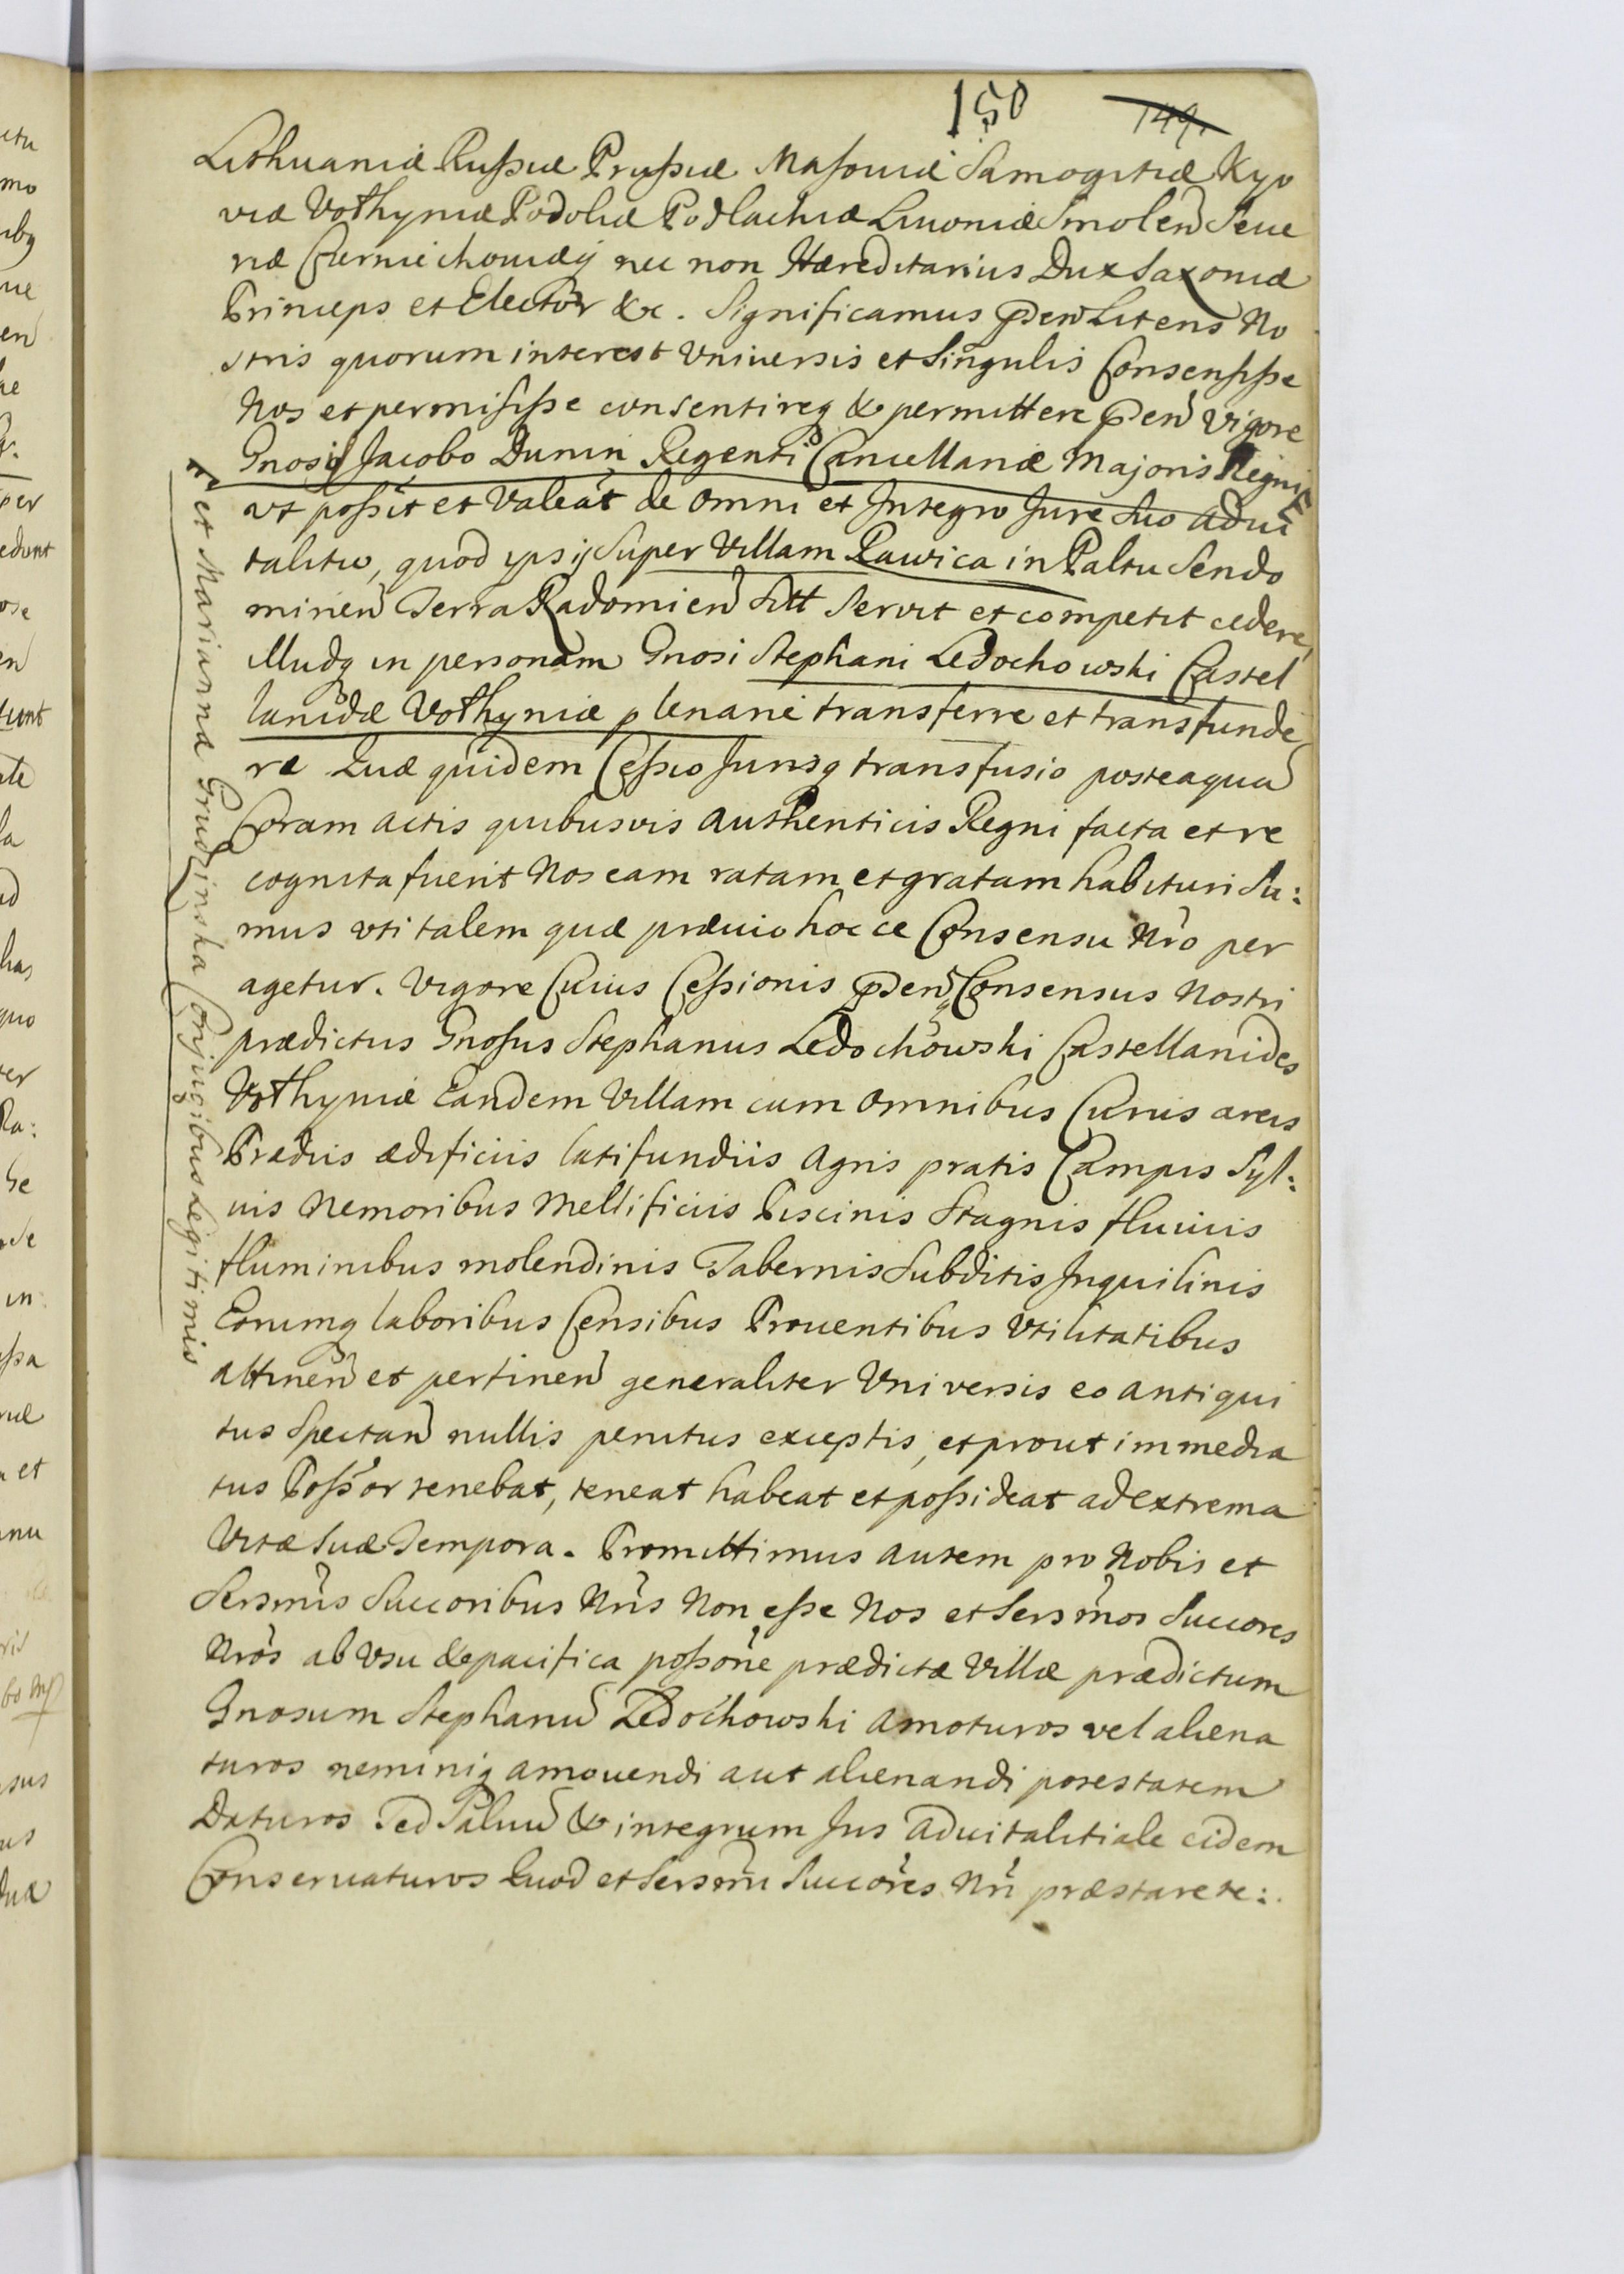 150 149.
Lithuaniæ Russiæ Prussiæ Masoviæ Samogitiæ Kyo
viæ Volhyniæ Podoliæ Podlachiæ Livoniæ Smolen Seve
riæ Czerniechoviæq nec non Hæreditarius Dux Saxoniæ
Princeps et Elector &c. Significamus pñen Literis No
stris quorum interest Vniversis et Singulis Consensisse
Nos et permisisse consentireq & permittere pñen vigore
Gnosis Jacobo Dunin Regenti Cancellariæ Majoris Regni
vt possit et Valeat de omni et Integro Jure suo advi
talitio, quod ipsis Super Villam Rawica in Paltu Sendo
mirien Terra Radomien Sitt servit et competit cedere,
illudq in personam Gnosi Stephani Ledochowski Castel
lanidæ Volhyniæ plenarie transferre et transfunde
re Quæ quidem Cessio Jurisq transfusio posteaqua
Coram actis quibusvis authenticis Regni facta et re
cognita fuerit Nos eam ratam et gratam habituri Su:
mus vti talem quæ prævio hocce Consensu Nro per
agetur. Vigore Cuius Cessionis pñen Consensus Nostri
prædictus Gnosus Stephanus Ledochowski Castellanides
Volhyniæ Eandem Villam cum omnibus Curiis areis
Prædiis ædificiis latifundiis Agris pratis Campis Syl:
uis Nemoribus Mellificiis Piscinis Stagnis fluviis
fluminibus molendinis Tabernis Subditis Inquilinis
Eorumq laboribus Censibus Proventibus Vtilitatibus
attinen et pertinen generaliter Vniversis eo antiqui
tus Spectan nullis penitus exceptis, et prout immedia
tus Possor tenebat, teneat habeat et possideat ad extrema
Vitæ suæ Tempora. Promittimus autem pro Nobis et
Sersmis Succoribus Nris Non esse Nos et Sersmos Succores
Nros ab Vsu & pacifica possone prædictæ Villæ prædictum
Gnosum Stephanu Ledochowski amoturos vel aliena
turos neminiq amovendi aut alienandi potestatem
Daturos Sed Saluu & integrum Jus advitalitiale eidem
Conservaturos Quod et Sersmi Succores Nri præstare te:
et Marianna Grudzinska Conjugibus Legitimis